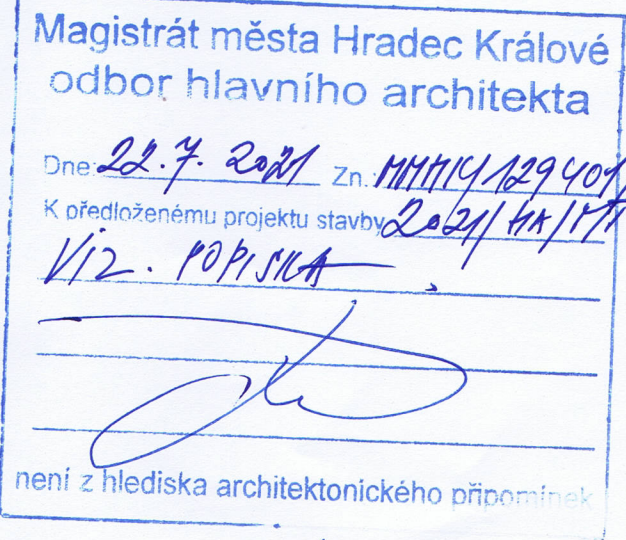 Magistrát města Hradec Králové
odbor hlavního architekta
Dne: 22.7. 2021 Zn.: MMHK/129401/
K předloženému projektu stavby 2021/HA/
VIZ. POPISKA
není z hlediska architektonického připomínek